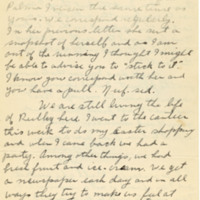 yours. We correspond regularly.
In her previous letter she sent a
snapshot of herself and as I am
out of the running I thought I might
be able to advise you to "stick to it".
I know you correspond with her and
you have a pull. Nuf. sed.
We are still living the life
of Reilly here. I went to the canteen
this week to do my Easter shopping
and when I came back we had a
party. Among other things, we had
fresh fruit and ice-cream. We get
a newspaper each day and in all
ways they try to make us feel at